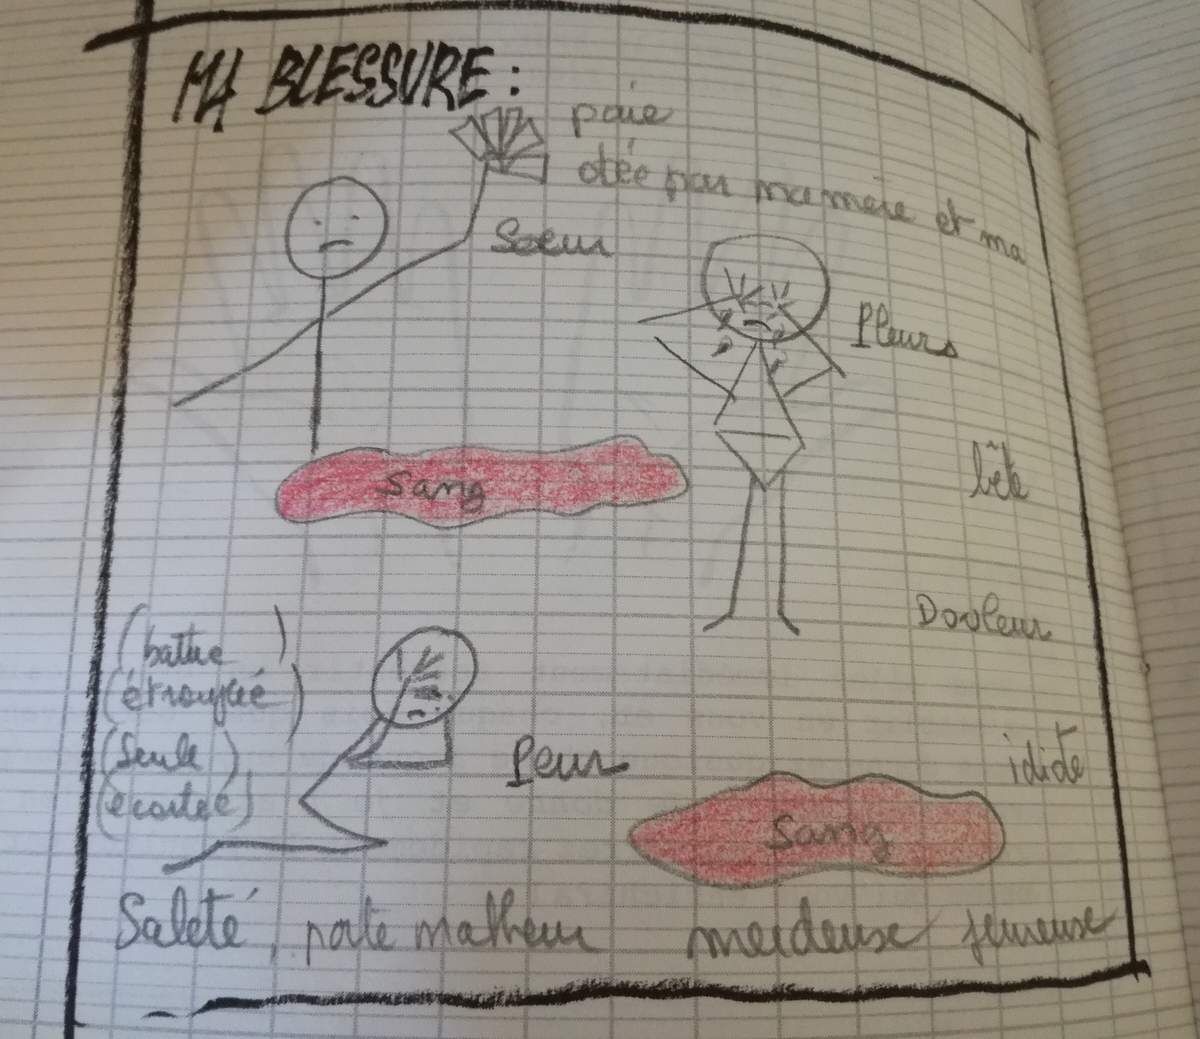 MA BLESSURE :
paie
otée par ma mère et ma
Soeur
Pleurs
bête
Sang
Douleur
(battue)
(étouffée)
(Seule)
(écartée)
Peur
idiote
Sang
Saleté, porte malheur merdeuse